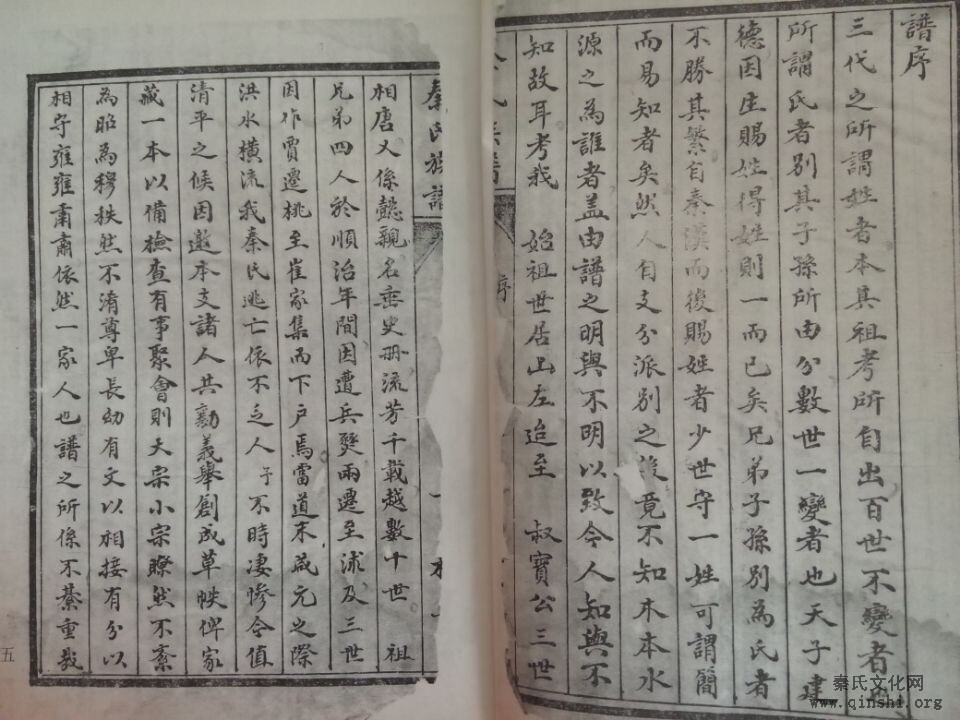 譜序
三代之所謂姓者本其祖考所自出百世不變者也
所謂氏者別其子孫所由分數世一變者也天子建
德因生賜姓得姓則一而已矣兄弟子孫別為氏者
不勝其繁自秦漢而後賜姓者少世守一姓可謂簡
而易知者矣然人自支分派別之後竟不知木本水
源之為誰者盖由譜之明與不明以致令人知與不
知故耳考我 始祖世居山左迨至 叔寶公三世
序
秦氏族譜
相唐又係懿親名垂史册流芳千載越數十世 祖
兄弟四人於順治年間因遭兵燹兩遷至浦及三世
因作賈遷桃至崔家集而下戶焉當道末咸元之際
洪水橫流我秦氏逃亡依不乏人 于不時凄慘今值
清平之候因邀本支諸人共勷義舉創成草帙俾家
藏一本以備檢查有事聚會則大宗小宗瞭然不紊
為昭為穆秩然不淆尊卑長幼有文以相接有分以
相守雍雍肅肅依然一家人也譜之所係不綦重哉
五
秦氏文化网
www.qinshi.org